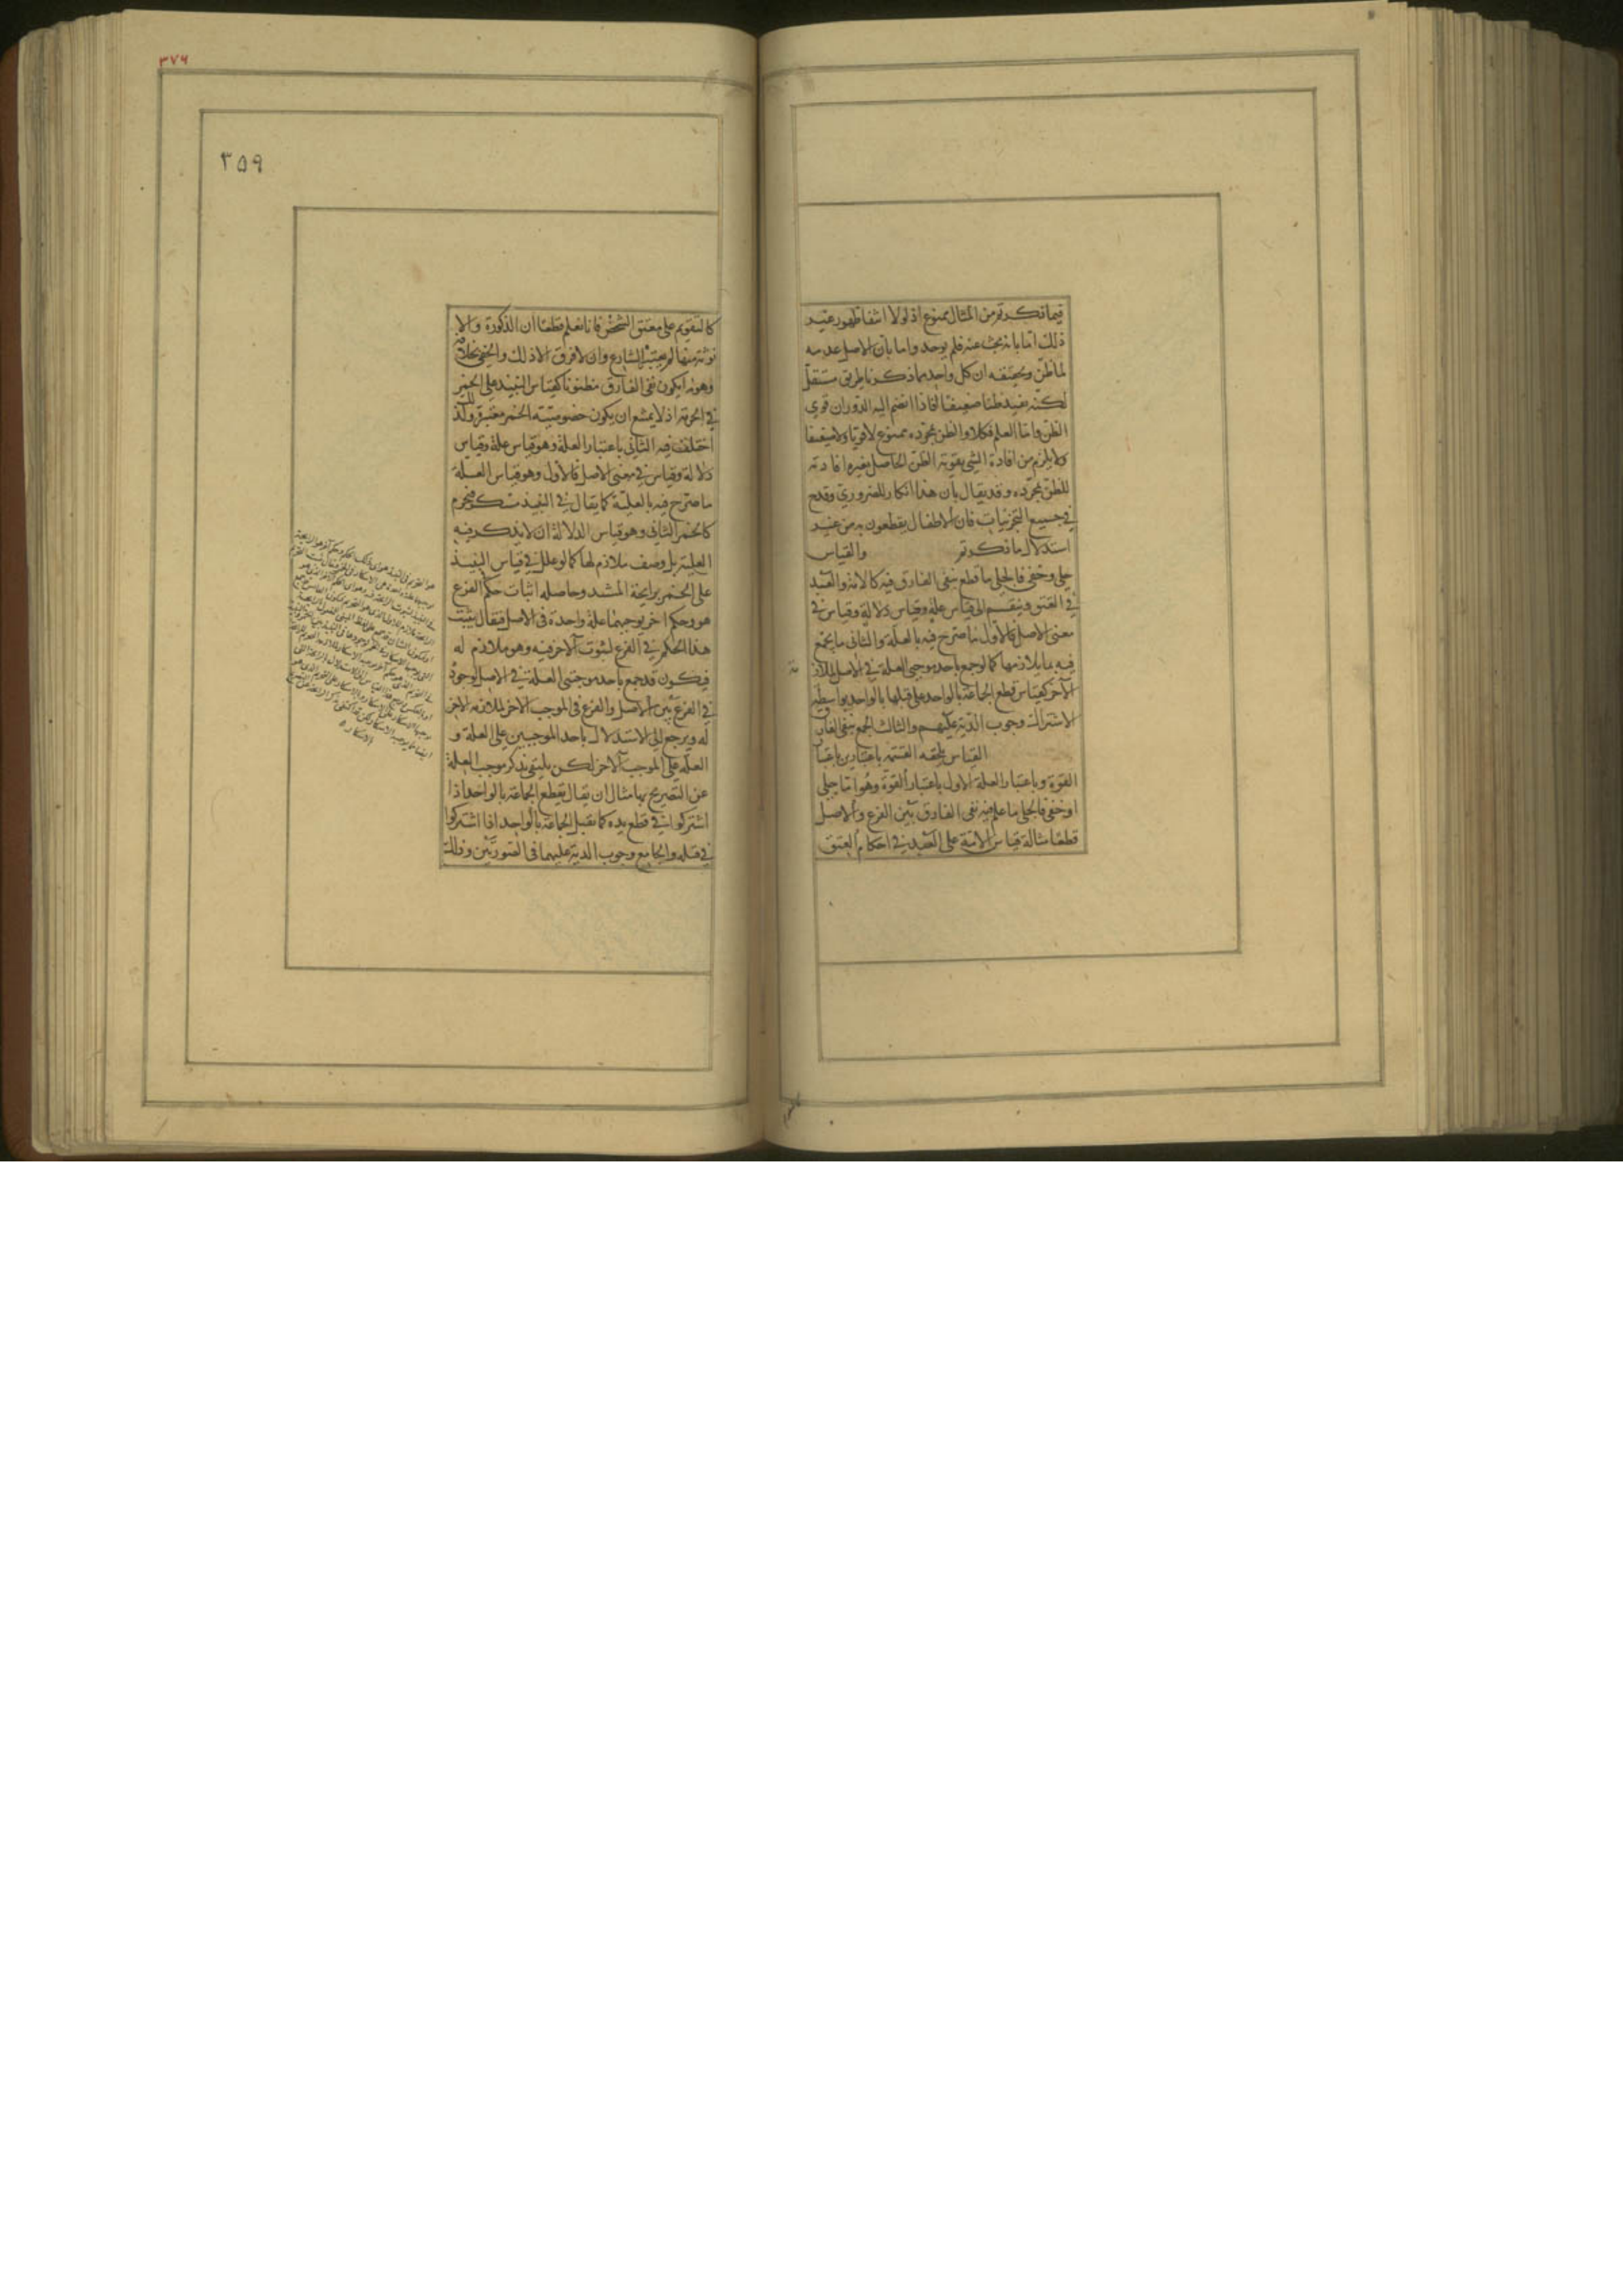 فيما ذكرتم من المثال ممنوع اذ لولا انتفا ظهور غير
ذلك اما بانه بحث عنه فلم يوجد واما بان الاصل عدمه
لما ظن وتحقيقه ان كل واحد مما ذكرنا طريق مستقل
لكنه يفيد ظنا ضعيفا فاذا انضم اليه الدوران قوي
الظن واما العلم فكلا والظن بمجرده ممنوع لا قويا ولا ضعيفا
ولا يلزم من افادة الشي تقوية الظن الحاصل بغيره افادته
للظن بمجرده وقد يقال بان هذا انكار للضروري وقدح
في جميع التجربيات فان الاطفال يقطعون به من غير
استدلال ما ذكرتم والقياس
جلي وخفي فالجلي ما قطع بنفي الفارق فيه كالامة والعبد
في العتق وينقسم الى قياس علة وقياس دلالة وقياس في
معنى الاصل فالاول ما صرح فيه بالعلة والثاني ما يجمع
فيه بما يلازمها كما لو جمع باحد موجبي العلة في الاصل لملاز
مة
الآخر كقياس قطع الجماعة بالواحد على قتلها بالواحد بواسطة
الاشتراك وجوب الدية عليهم والثالث الجمع بنفي الفارق
القياس يلحقه القسمة باعتبارين باعتبا
القوة وباعتبار العلة الاول باعتبار القوة وهو اما جلي
او خفي فالجلي ما علم فيه نفي الفارق بين الفرع والاصل
قطعا مثاله قياس الامة على العبد في احكام العتق
٣٧٦
٣٥٩
كالتقويم على معتق الشقص فانا نعلم قطعا ان الذكورة والا
نوثة منها لم يعتبره الشارع وان لا فرق الا ذلك والخفي بخلافه
وهو ما يكون نفي الفارق مظنونا كقياس النبيذ على الخمر
في الحرمة اذ لا يمتنع ان يكون خصوصية الخمر معتبرة ولذلك
اختلف فيه الثاني باعتبار العلة وهو قياس علة وقياس
دلالة وقياس في معنى الاصل فالاول وهو قياس العلة
ما صرح فيه بالعلية كما يقال في النبيذ مسكر فيحرم
كالخمر الثاني وهو قياس الدلالة ان لا يذكر فيه
العلية بل وصف ملازم لها كما لو علل في قياس النبيذ
على الخمر برايحة المشتد وحاصله اثبات حكم الفرع
هو وحكم اخر يوجبهما علة واحدة في الاصل فيقال يثبت
هذا الحكم في الفرع لثبوت الآخر فيه وهو ملازم له
فيكون قد جمع باحد موجبي العلة في الاصل لوجوده
في الفرع بين الاصل والفرع في الموجب الاخر لملازمة الاخر
له ويرجع الى الاستدلال باحد الموجبين على العلة و
العلة على الموجب الاخر لكن يكتفي بذكر موجب العلة
عن التصريح بها مثال ان يقال يقطع الجماعة بالواحد اذا
اشتركوا في قطع يده كما يقتل الجماعة بالواحد اذا اشتركوا
في قتله والجامع وجوب الدية عليهما في الصورتين وذلك